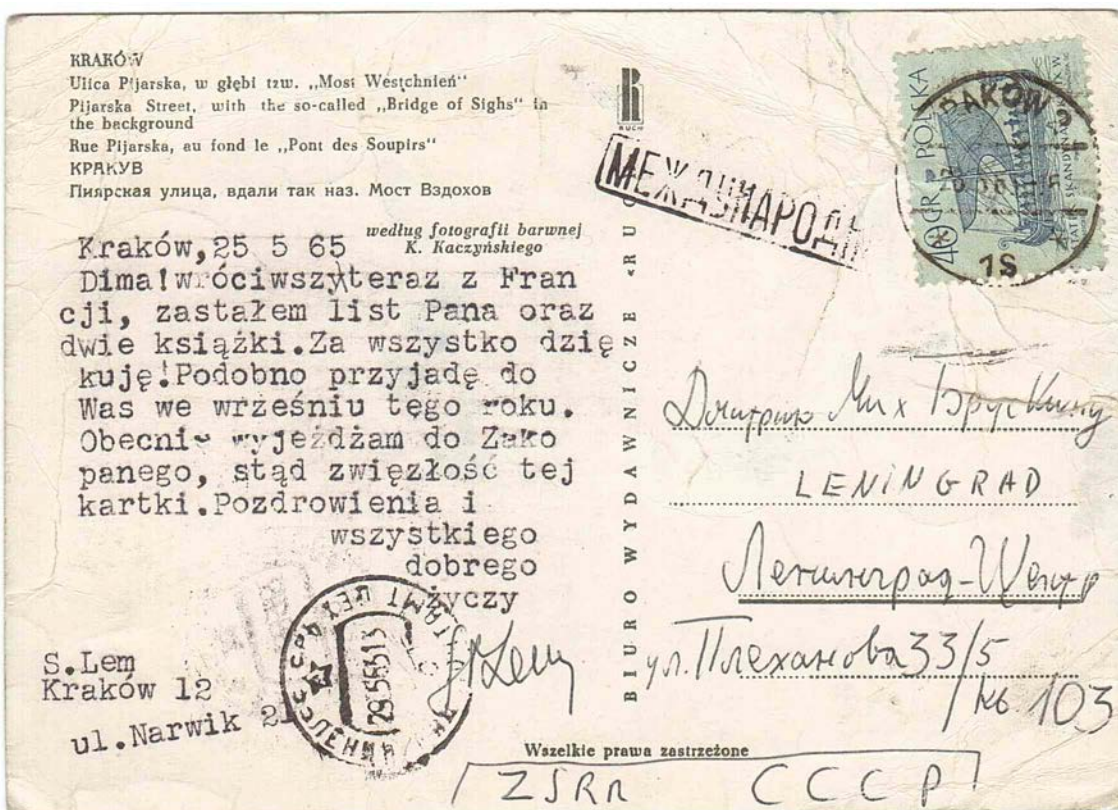 KRAKÓW
Ulica Pijarska, w głębi tzw. „Most Westchnień"
Pijarska Street, with the so-called „Bridge of Sighs" in
the background
Rue Pijarska, au fond le „Pont des Soupirs"
КРАКУВ
Пиярская улица, вдали так наз. Мост Вздохов
według fotografii barwnej
K. Kaczyńskiego
Kraków,25 5 65
Dima!wróciwszy teraz z Fran
cji, zastałem list Pana oraz
dwie książki.Za wszystko dzię
kuję!Podobno przyjadę do
Was we wrześniu tego roku.
Obecnie wyjeżdżam do Zako
panego, stąd zwięzłość tej
kartki.Pozdrowienia i
wszystkiego
dobrego
życzy
SLem
S.Lem
Kraków 12
ul.Narwik 21
ЛЕНИНГРАД
29.5.65.13
RUCH
BIURO WYDAWNICZE «RUCH»
МЕЖДУНАРОДН
40 GR POLSKA
KRAKÓW
1S
Дмитрию Мих Брускину
LENINGRAD
Ленинград-Центр
ул.Плеханова 33/5
кв. 103
Wszelkie prawa zastrzeżone
ZSRR СССР